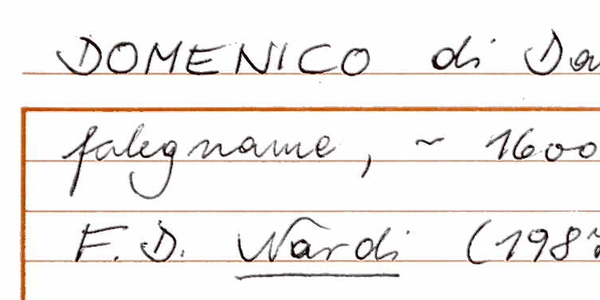 DOMENICO di Do
falegname, ~ 1600
F. D. Nardi (1987